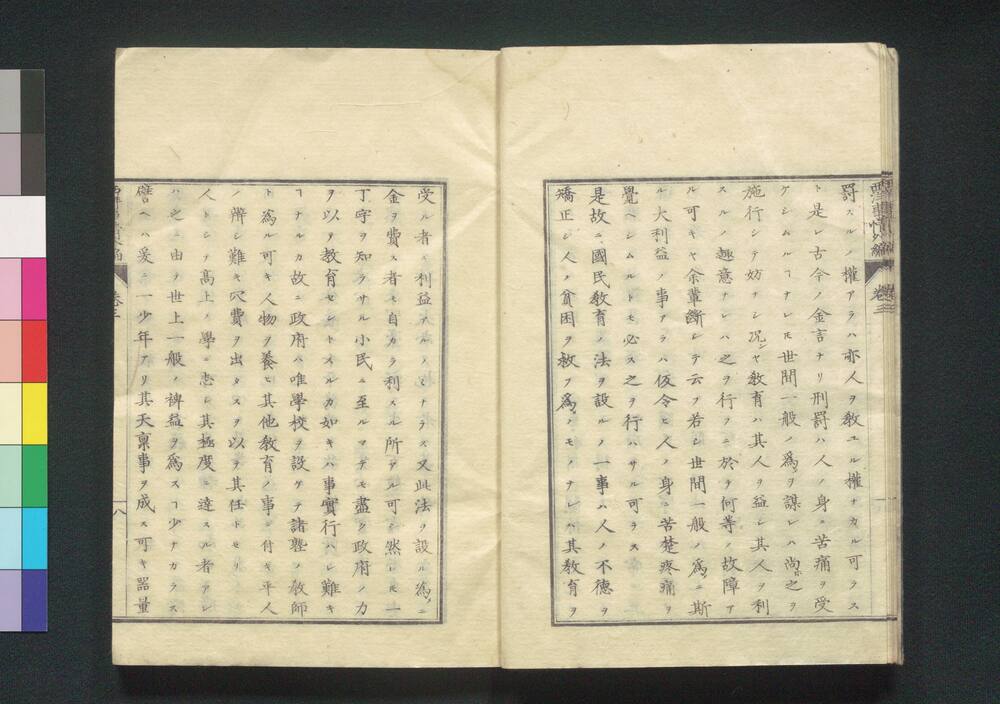 西洋事情外編 卷三
罰スルノ權アラハ亦人ヲ敎ユル權ナカル可ラス
ト是レ古今ノ金言ナリ刑罰ハ人ノ身ニ苦痛ヲ受
ケシムルヿナレモ世間一般ノ爲ヲ謀レハ尚之ヲ
施行シテ妨ケナシ况ヤ敎育ハ其人ヲ益シ其人ヲ利
スルノ趣意ナレハ之ヲ行フニ於テ何等ノ故障ア
ル可キヤ余輩斷シテ云フ若シ世間一般ノ爲メニ斯
ル大利益ノ事アラハ仮令ヒ人ノ身ニ苦楚疼痛ヲ
覺ヘシムルトモ必ス之ヲ行ハサル可ラス
是故ニ國民敎育ノ法ヲ設ルノ一事ハ人ノ不德ヲ
矯正シ人ノ貧困ヲ救フ為メノモノナレハ其敎育ヲ
受ル者ニ利益アルノミナラス又此法ヲ設ル為メニ
金ヲ費ス者モ自カラ利スル所アル可シ然レモ一
丁字ヲ知ラサル小民ニ至ルマテモ盡ク政府ノカ
ヲ以テ敎育セントスルカ如キハ事實行ハレ難キ
ヿナルカ故ニ政府ハ唯學校ヲ設ケテ諸塾ノ敎師
ト為ル可キ人物ヲ養ヒ其他敎育ノ事ニ付キ平人
ノ辨シ難キ冗費ヲ出タスヲ以テ其任トセリ
人トシテ高上ノ學ニ志シ其極度ニ達スル者アレ
ハ之ニ由テ世上一般ノ裨益ヲ爲スヿ少ナカラス
譬ヘハ爰ニ一少年アリ其天禀事ヲ成ス可キ器量
卷三
八